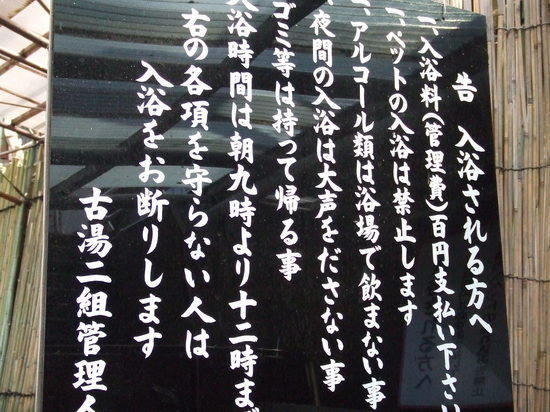 告 入浴される方へ
一、入浴料(管理費)百円支払い下さい
一、ペットの入浴は禁止します
一、アルコール類は浴場で飲まない事
夜間の入浴は大声をださない事
ゴミ等は持って帰る事
入浴時間は朝九時より十二時まで
右の各項を守らない人は
入浴をお断りします
古湯二組管理人